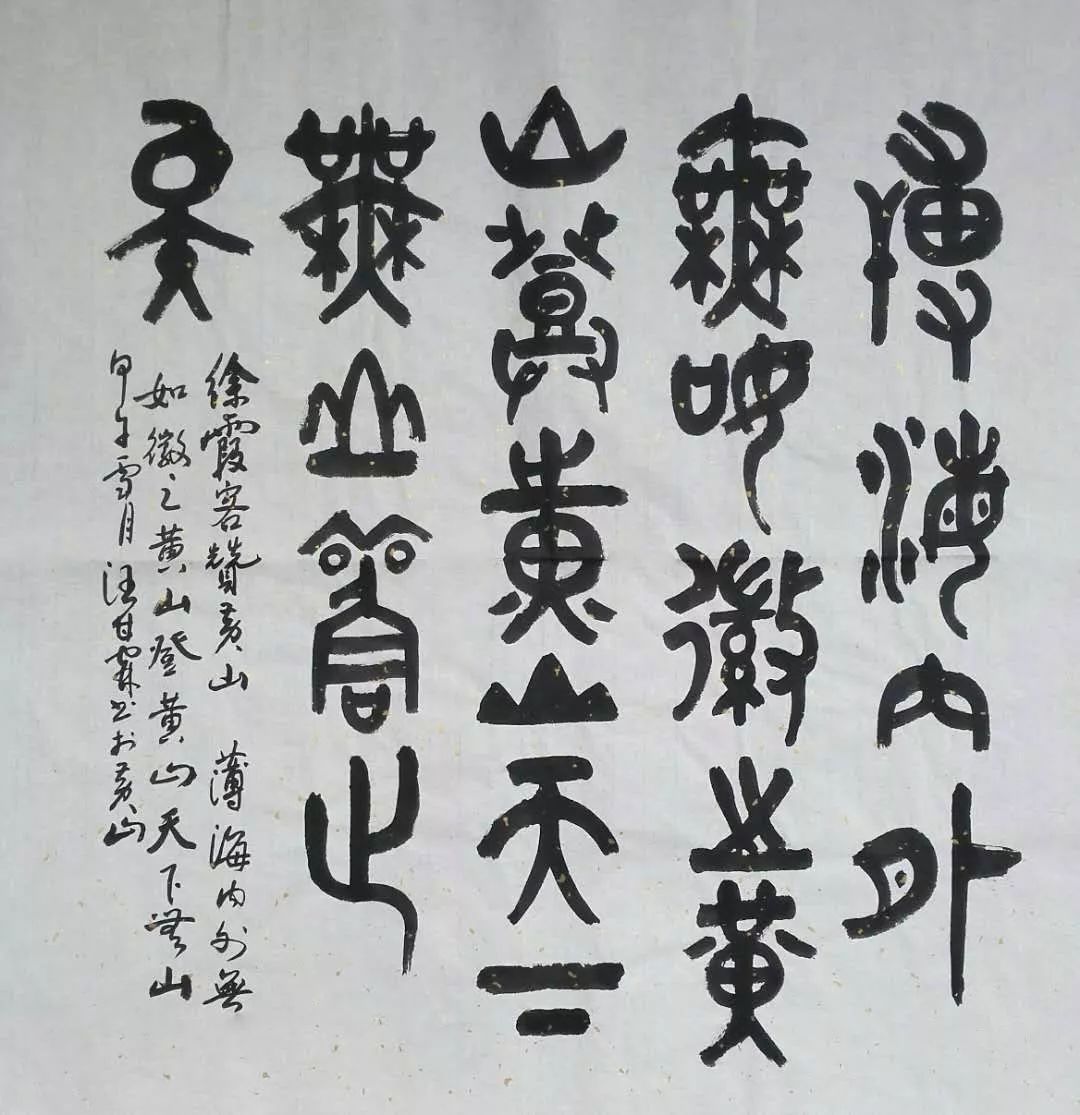 薄海内外
無如徽之黄
山登黄山天下
無山觀止
矣
徐霞客贊黄山 薄海内外無
如徽之黄山登黄山天下無山
甲午雪月汪甘霖书於黄山